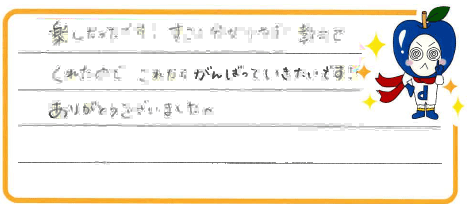 楽しかったです! すごく分かりやすく 教えて
くれたので これからがんばっていきたいです!
ありがとうございました。
d